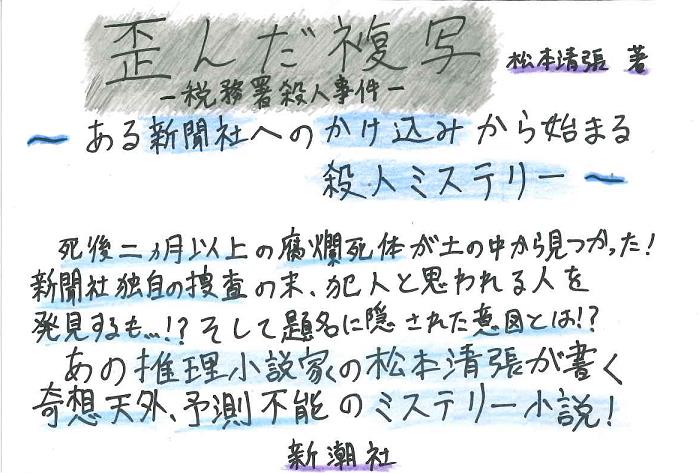 歪んだ複写
－税務署殺人事件－
松本清張 著
～ある新聞社へのかけ込みから始まる
殺人ミステリー～
死後二ヵ月以上の腐爛死体が土の中から見つかった！
新聞社独自の捜査の末、犯人と思われる人を
発見するも…!? そして題名に隠された意図とは!?
あの推理小説家の松本清張が書く
奇想天外、予測不能のミステリー小説！
新潮社